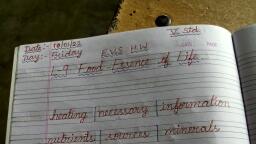 VI Std
Date:- 18/01/22
Day:- Friday E.V.S H.W
L-9 Food Essence of Life
heating necessary information
nutrients sources minerals